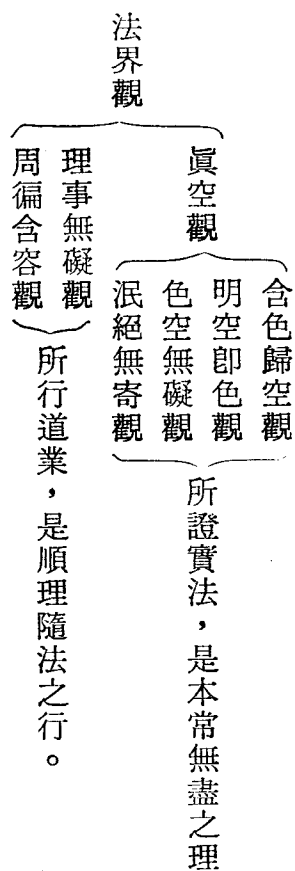 法界觀
眞空觀
含色歸空觀
明空卽色觀
色空無礙觀
泯絕無寄觀
所證實法，是本常無盡之理
理事無礙觀
周徧含容觀
所行道業，是順理隨法之行。